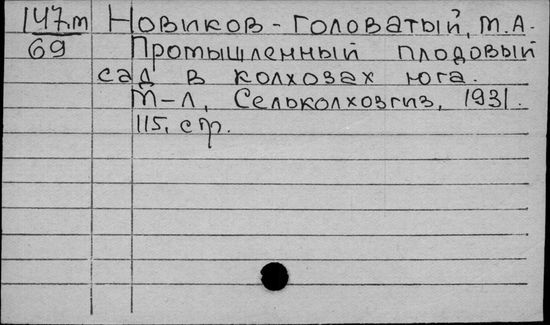 147m Новиков-Головатый, М.А.
69 Промышленный плодовый
сад в колхозах юга.
М-Л, Сельколхозгиз, 1931.
115, стр.